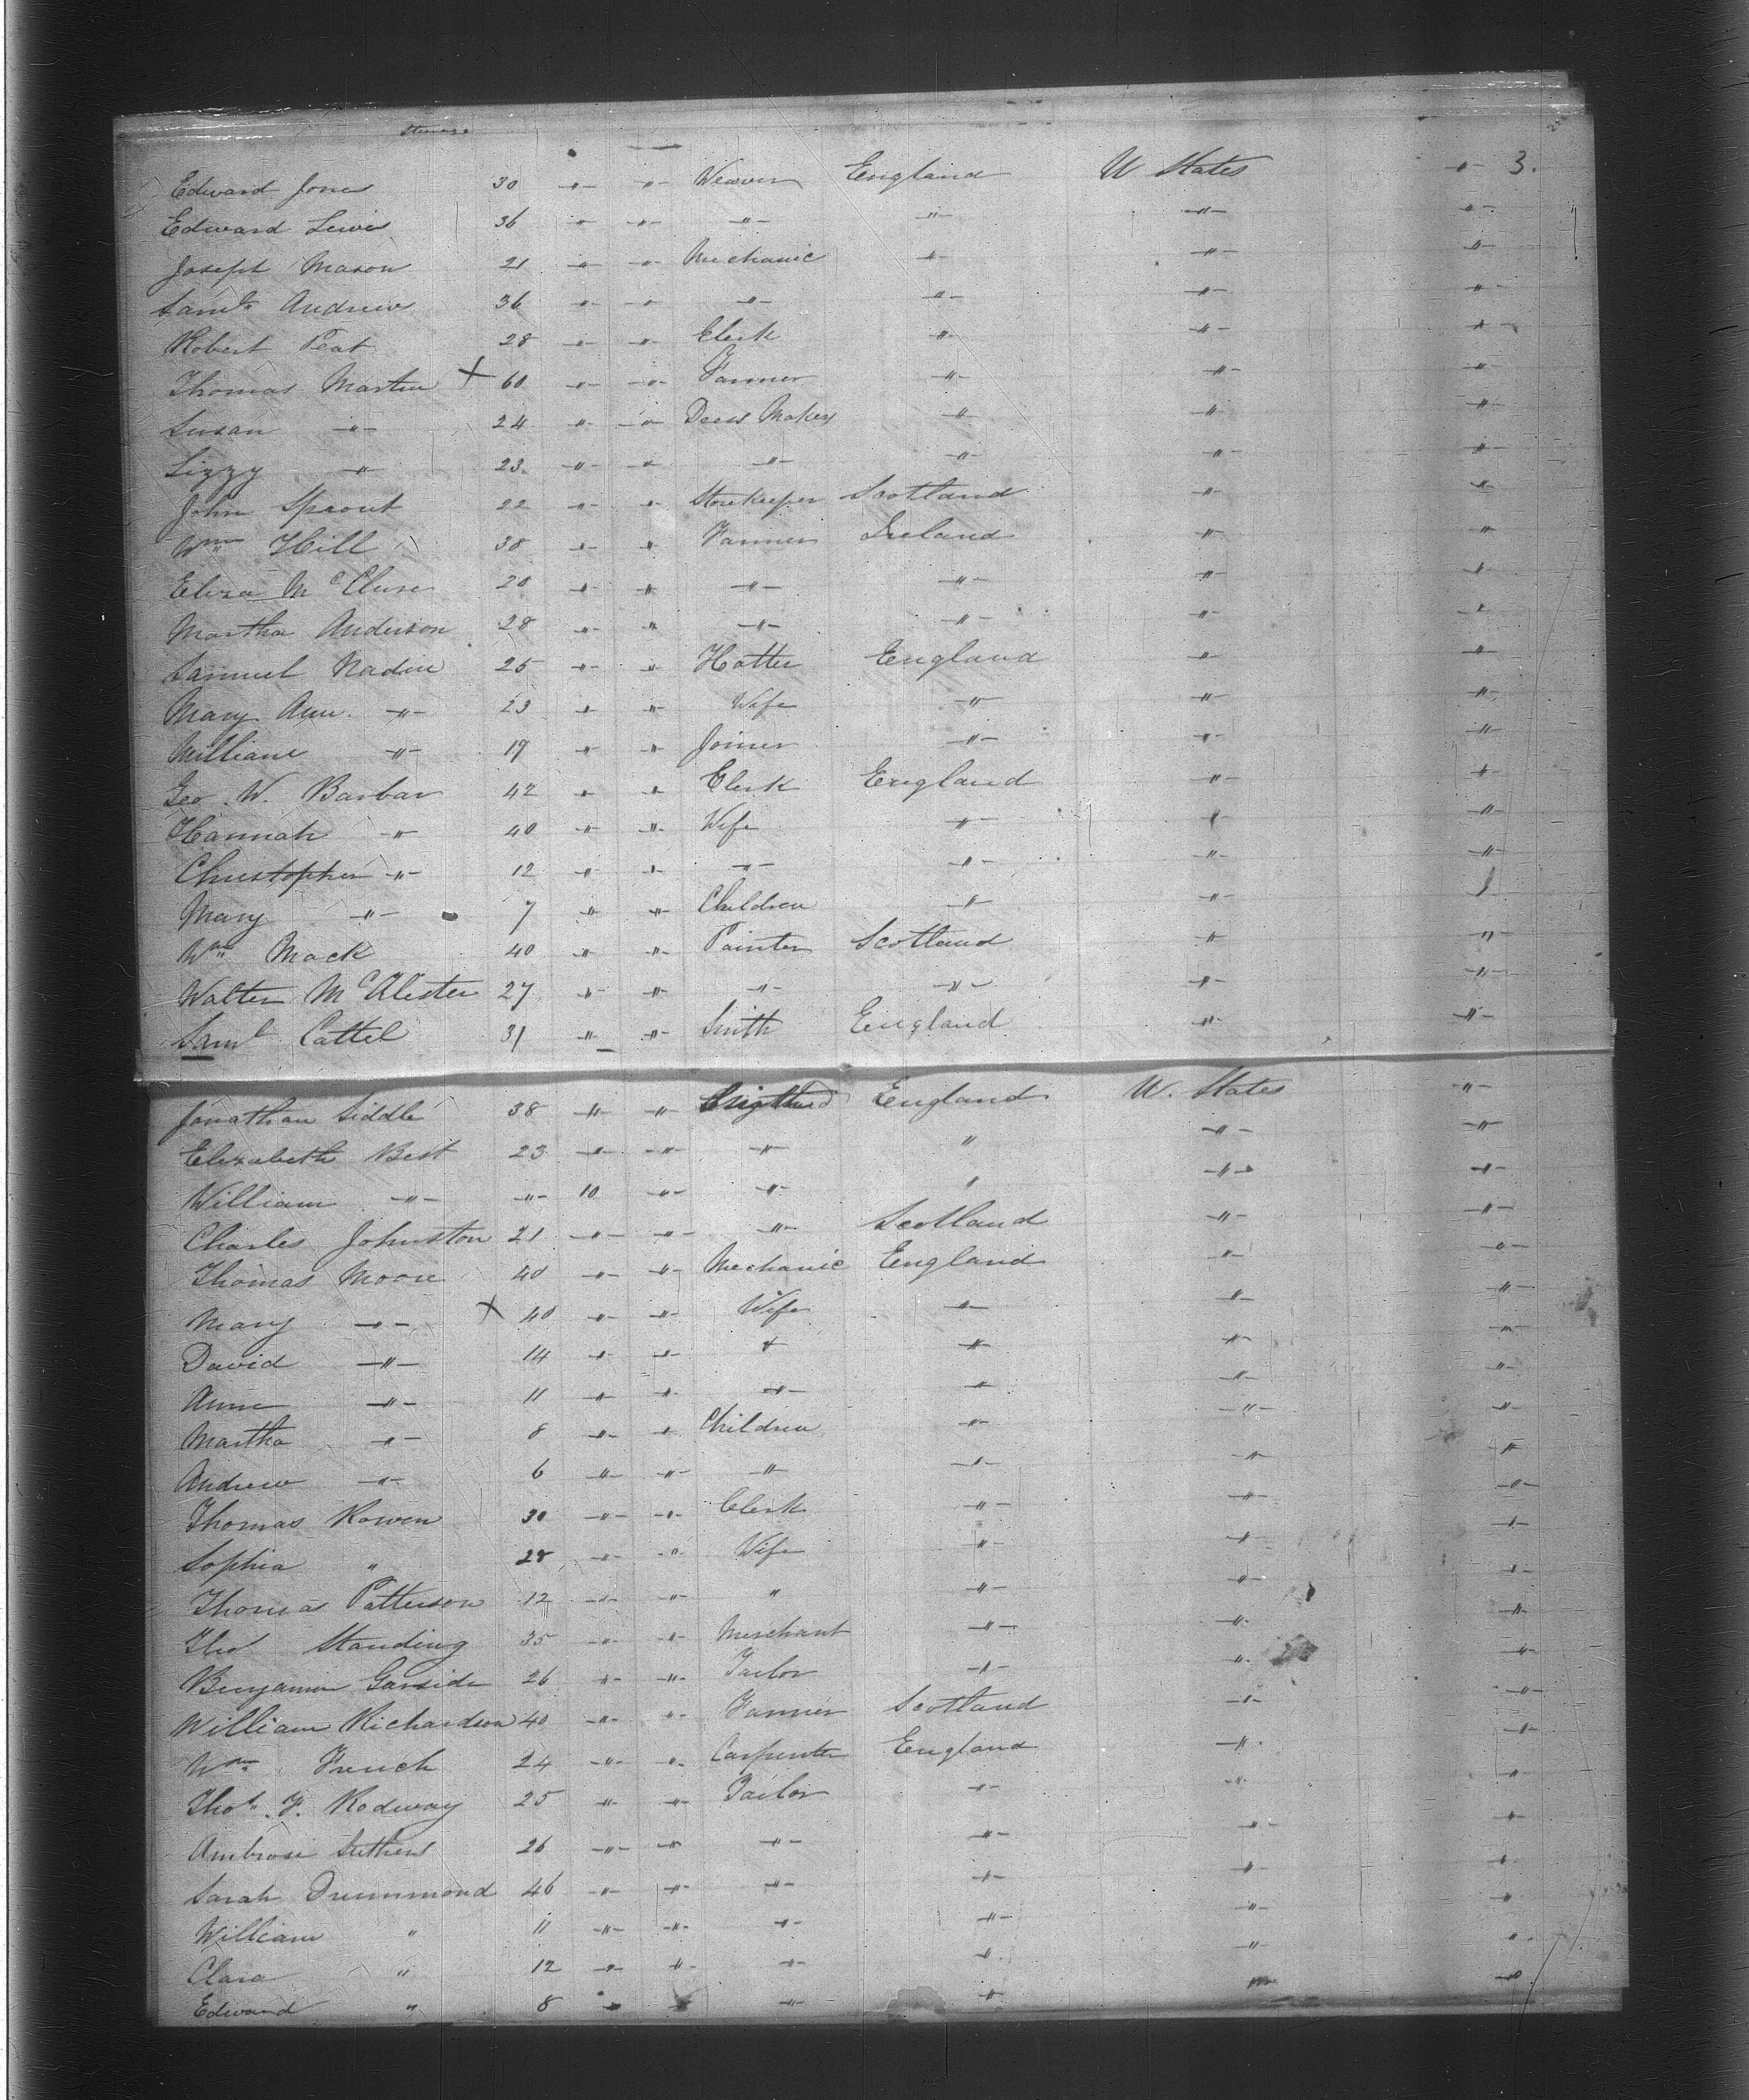 Steerage
Edward Jones 30 " " Weaver England U States " 3.
Edward Lewis 36 " " " " " "
Joseph Mason 21 " " Mechanic " " "
Saml. Andrew 36 " " " " " "
Robert Peat 28 " " Clerk " " "
Thomas Martin X 60 " " Farmer " " "
Susan " 24 " " Dress Maker " " "
Lizzy " 23 " " " " " "
John Sprout 22 " " Storekeeper Scotland " "
Wm Hill 38 " " Farmer Ireland " "
Eliza McClure 20 " " " " " "
Martha Anderson 28 " " " " " "
Samuel Nadin 25 " " Hatter England " "
Mary Ann " 23 " " Wife " " "
William " 19 " " Joiner " " "
Geo. W. Barbar 42 " " Clerk England " "
Hannah " 40 " " Wife " " "
Christopher " 12 " " " " " "
Mary " 7 " " Children " "
Wm Mack 40 " " Painter Scotland " "
Walter McAlester 27 " " " " " "
Saml Cattel 31 " " Smith England " "
Jonathan Siddle 38 " " England U. States "
Elizabeth Best 23 " " " " " "
William " " 10 " " " " "
Charles Johnston 21 " " " Scotland " "
Thomas Moore 40 " " Mechanic England " "
Mary " X 40 " " Wife " " "
David " 14 " " " " " "
Anne " 11 " " " " " "
Martha " 8 " " Children " " "
Andrew " 6 " " " " " "
Thomas Rowen 30 " " Clerk " " "
Sophia " 28 " " Wife " " "
Thomas Patterson 12 " " " " " "
Thos Standing 35 " " Merchant " " "
Benjamin Garside 26 " " Tailor " " "
William Richardson 40 " " Farmer Scotland " "
Wm. French 24 " " Carpenter England " "
Thos. F. Rodway 25 " " Tailor " " "
Ambrose Stethens 26 " " " " " "
Sarah Drummond 46 " " " " " "
William " 11 " " " " " "
Clara " 12 " " " " " "
Edward " 8 " " " " " "